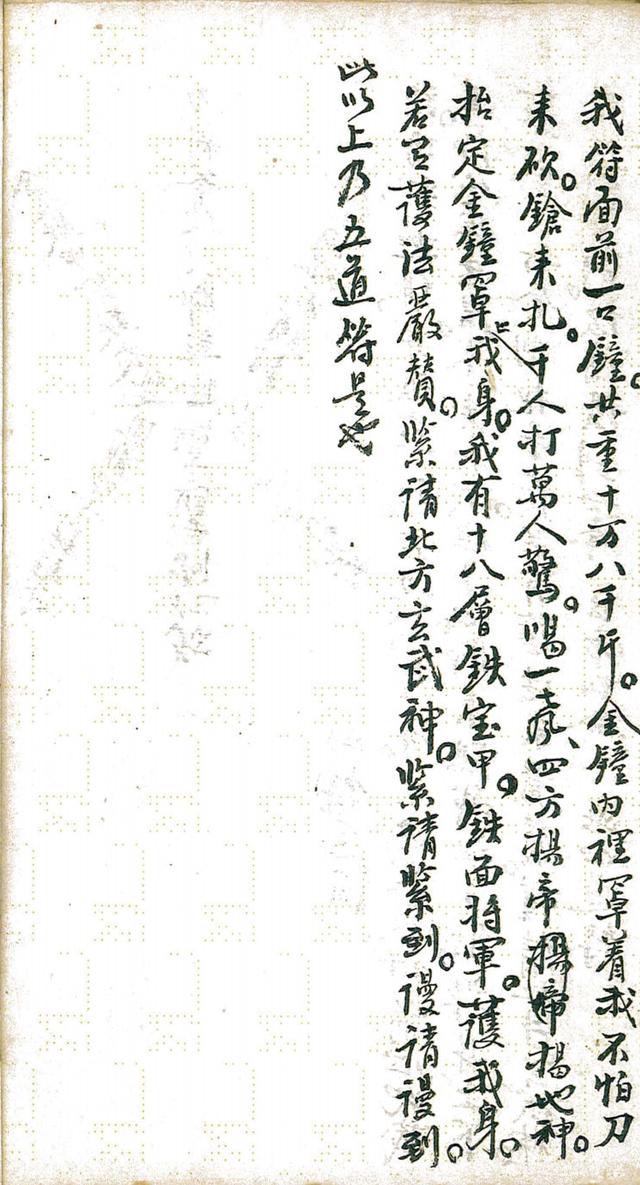 我符面前一口鐘。共重十万八千斤。金鐘内裡罩着我不怕刀
来砍。鎗来扎。千人打萬人驚。喝一声、四方揚帝揚啼揚地神。
抬定金鐘罩上我身。我有十八層鉄宝甲。鉄面将軍。護我身。
若有護法嚴賛。紧请北方玄武神。紧请緊到。谩请谩到。
此以上乃五道符是也